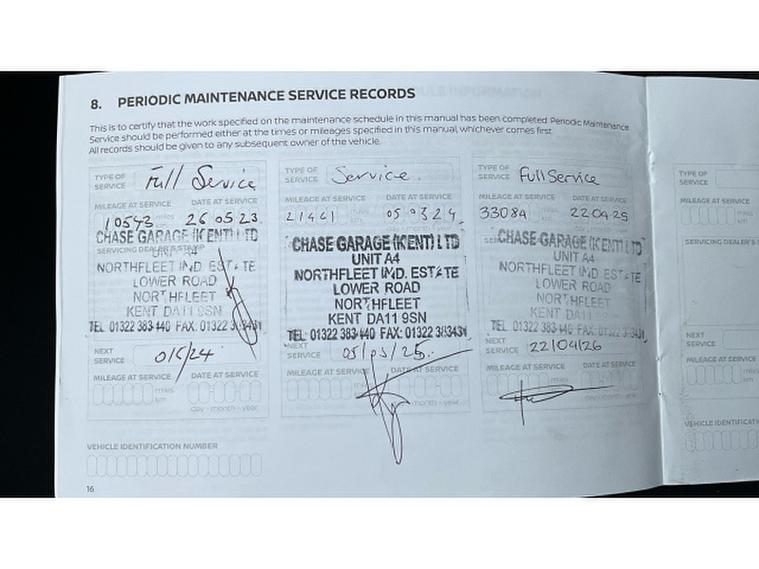 8. PERIODIC MAINTENANCE SERVICE RECORDS
This is to certify that the work specified on the maintenance schedule in this manual has been completed. Periodic Maintenance
Service should be performed either at the times or mileages specified in this manual, whichever comes first.
All records should be given to any subsequent owner of the vehicle.
TYPE OF SERVICE Full Service
MILEAGE AT SERVICE DATE AT SERVICE
10543 miles 26 05 23
CHASE GARAGE (KENT) LTD
UNIT A4
NORTHFLEET IND. ESTATE
LOWER ROAD
NORTHFLEET
KENT DA11 9SN
TEL: 01322 383440 FAX: 01322 383431
NEXT SERVICE
MILEAGE AT SERVICE DATE AT SERVICE
miles
km
day - month - year
TYPE OF SERVICE Service.
MILEAGE AT SERVICE DATE AT SERVICE
21461 miles 05 03 24
CHASE GARAGE (KENT) LTD
UNIT A4
NORTHFLEET IND. ESTATE
LOWER ROAD
NORTHFLEET
KENT DA11 9SN
TEL: 01322 383440 FAX: 01322 383431
NEXT SERVICE 05/03/25.
MILEAGE AT SERVICE DATE AT SERVICE
month - year
TYPE OF SERVICE Full Service
MILEAGE AT SERVICE DATE AT SERVICE
33084 22 04 25
CHASE GARAGE (KENT) LTD
UNIT A4
NORTHFLEET IND. ESTATE
LOWER ROAD
NORTHFLEET
KENT DA11
TEL: 01322 383440 FAX: 01322 383431
NEXT SERVICE 22/04/26
MILEAGE AT SERVICE DATE AT SERVICE
miles
km
day - month - year
VEHICLE IDENTIFICATION NUMBER
16
TYPE OF SERVICE
MILEAGE AT SERVICE
miles
km
SERVICING DEALER'S
NEXT SERVICE
MILEAGE AT SERVICE
VEHICLE IDENTIFICATION